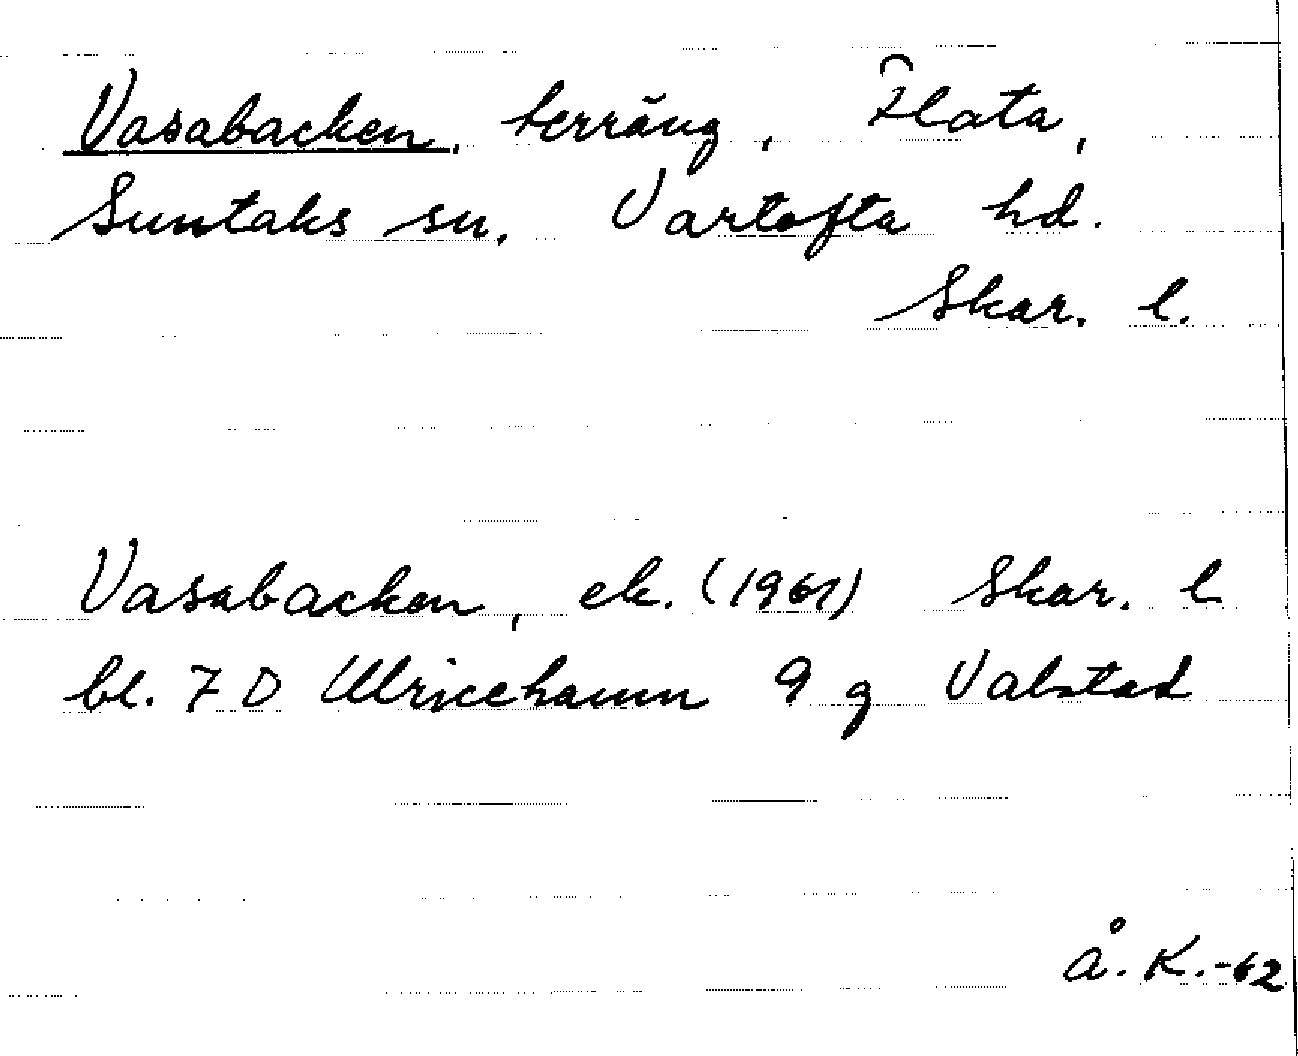 Vasabacken, terräng, Flata,
Suntaks sn. Vartofta hd.
Skar. l.
Vasabacken, ek. (1961) Skar. l
bl. 7 D Ulricehamn 9 g Valstad
Å. K. -62